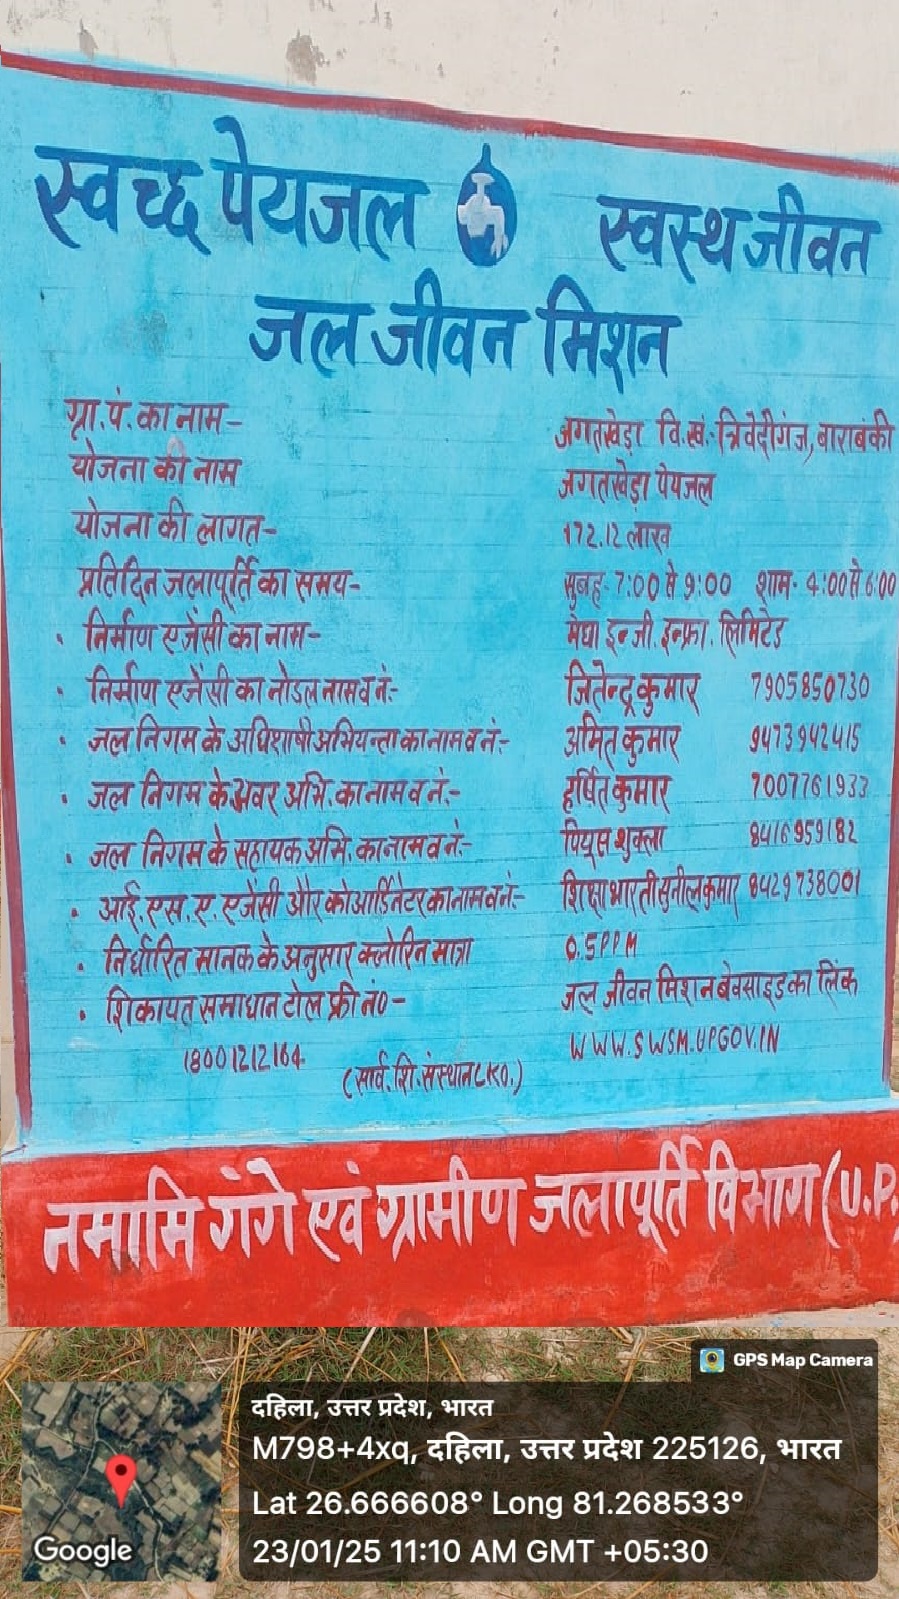 स्वच्छ पेयजल स्वस्थ जीवन
जल जीवन मिशन
ग्रा.पं. का नाम- जगतखेड़ा वि.खं.- त्रिवेदीगंज, बाराबंकी
योजना की नाम जगतखेड़ा पेयजल
योजना की लागत- 172.12 लाख
प्रतिदिन जलापूर्ति का समय- सुबह- 7:00 से 9:00 शाम- 4:00 से 6:00
• निर्माण एजेंसी का नाम- मेघा इन्जी. इन्फ्रा. लिमिटेड
• निर्माण एजेंसी का नोडल नाम व नं:- जितेन्द्र कुमार 7905850730
• जल निगम के अधिशाषी अभियन्ता का नाम व नं:- अमित कुमार 9473942415
• जल निगम के अवर अभि. का नाम व नं:- हर्षित कुमार 7007761933
• जल निगम के सहायक अभि. का नाम व नं:- पियूस शुक्ला 8416959182
• आई.एस.ए. एजेंसी और कोआर्डिनेटर का नाम व नं:- शिक्षा भारती सुनील कुमार 8429738001
• निर्धारित मानक के अनुसार क्लोरिन मात्रा 0.5PPM
• शिकायत समाधान टोल फ्री नं0- जल जीवन मिशन बेवसाइड का लिंक
18001212164 WWW.SWSM.UPGOV.IN
(सार्व. शि. संस्थान LKO.)
नमामि गंगे एवं ग्रामीण जलापूर्ति विभाग (U.P.
GPS Map Camera
दहिला, उत्तर प्रदेश, भारत
M798+4xq, दहिला, उत्तर प्रदेश 225126, भारत
Lat 26.666608° Long 81.268533°
23/01/25 11:10 AM GMT +05:30
Google